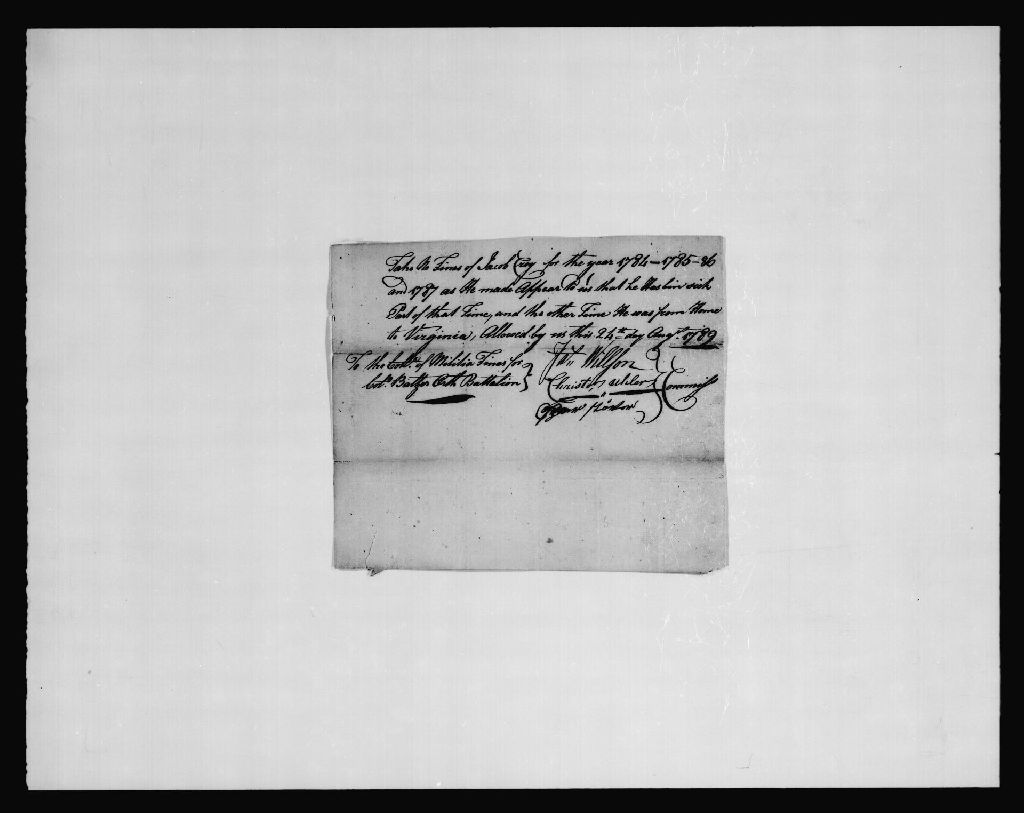 Take the Fines of Jacob Croy for the year 1784–1785–86
and 1787 as He made Appear to us that he Has bin sick
Part of that Time, and the other Time He was from Home
to Virginia, Allowed by us this 24th day Augt. 1789
To the Collr. of Militia Fines for
Col. Balzer Orth Battalion
Wilson
Christor. Uhler
Commiss